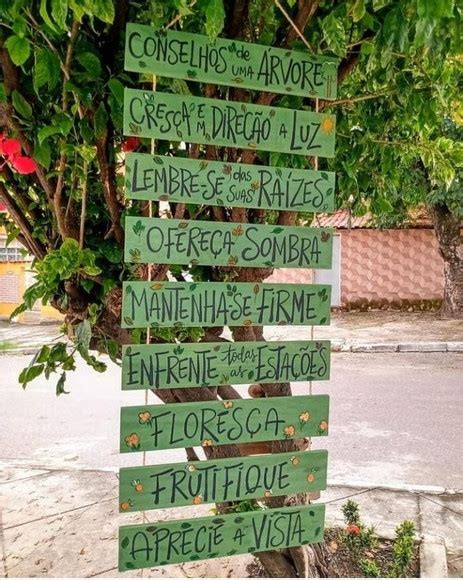 CONSELHOS de uma ÁRVORE!!
CRESÇA Em DIREÇÃO A LUZ
LEMBRE-SE das suas RAÍZES
OFEREÇA SOMBRA
MANTENHA-SE FIRME
ENFRENTE todas as ESTAÇÕES
FLORESÇA
FRUTIFIQUE
APRECIE A VISTA